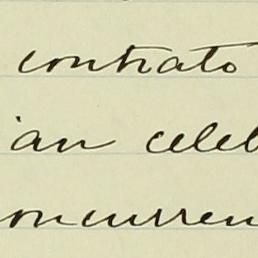 contrato
ian celeb
oncurren